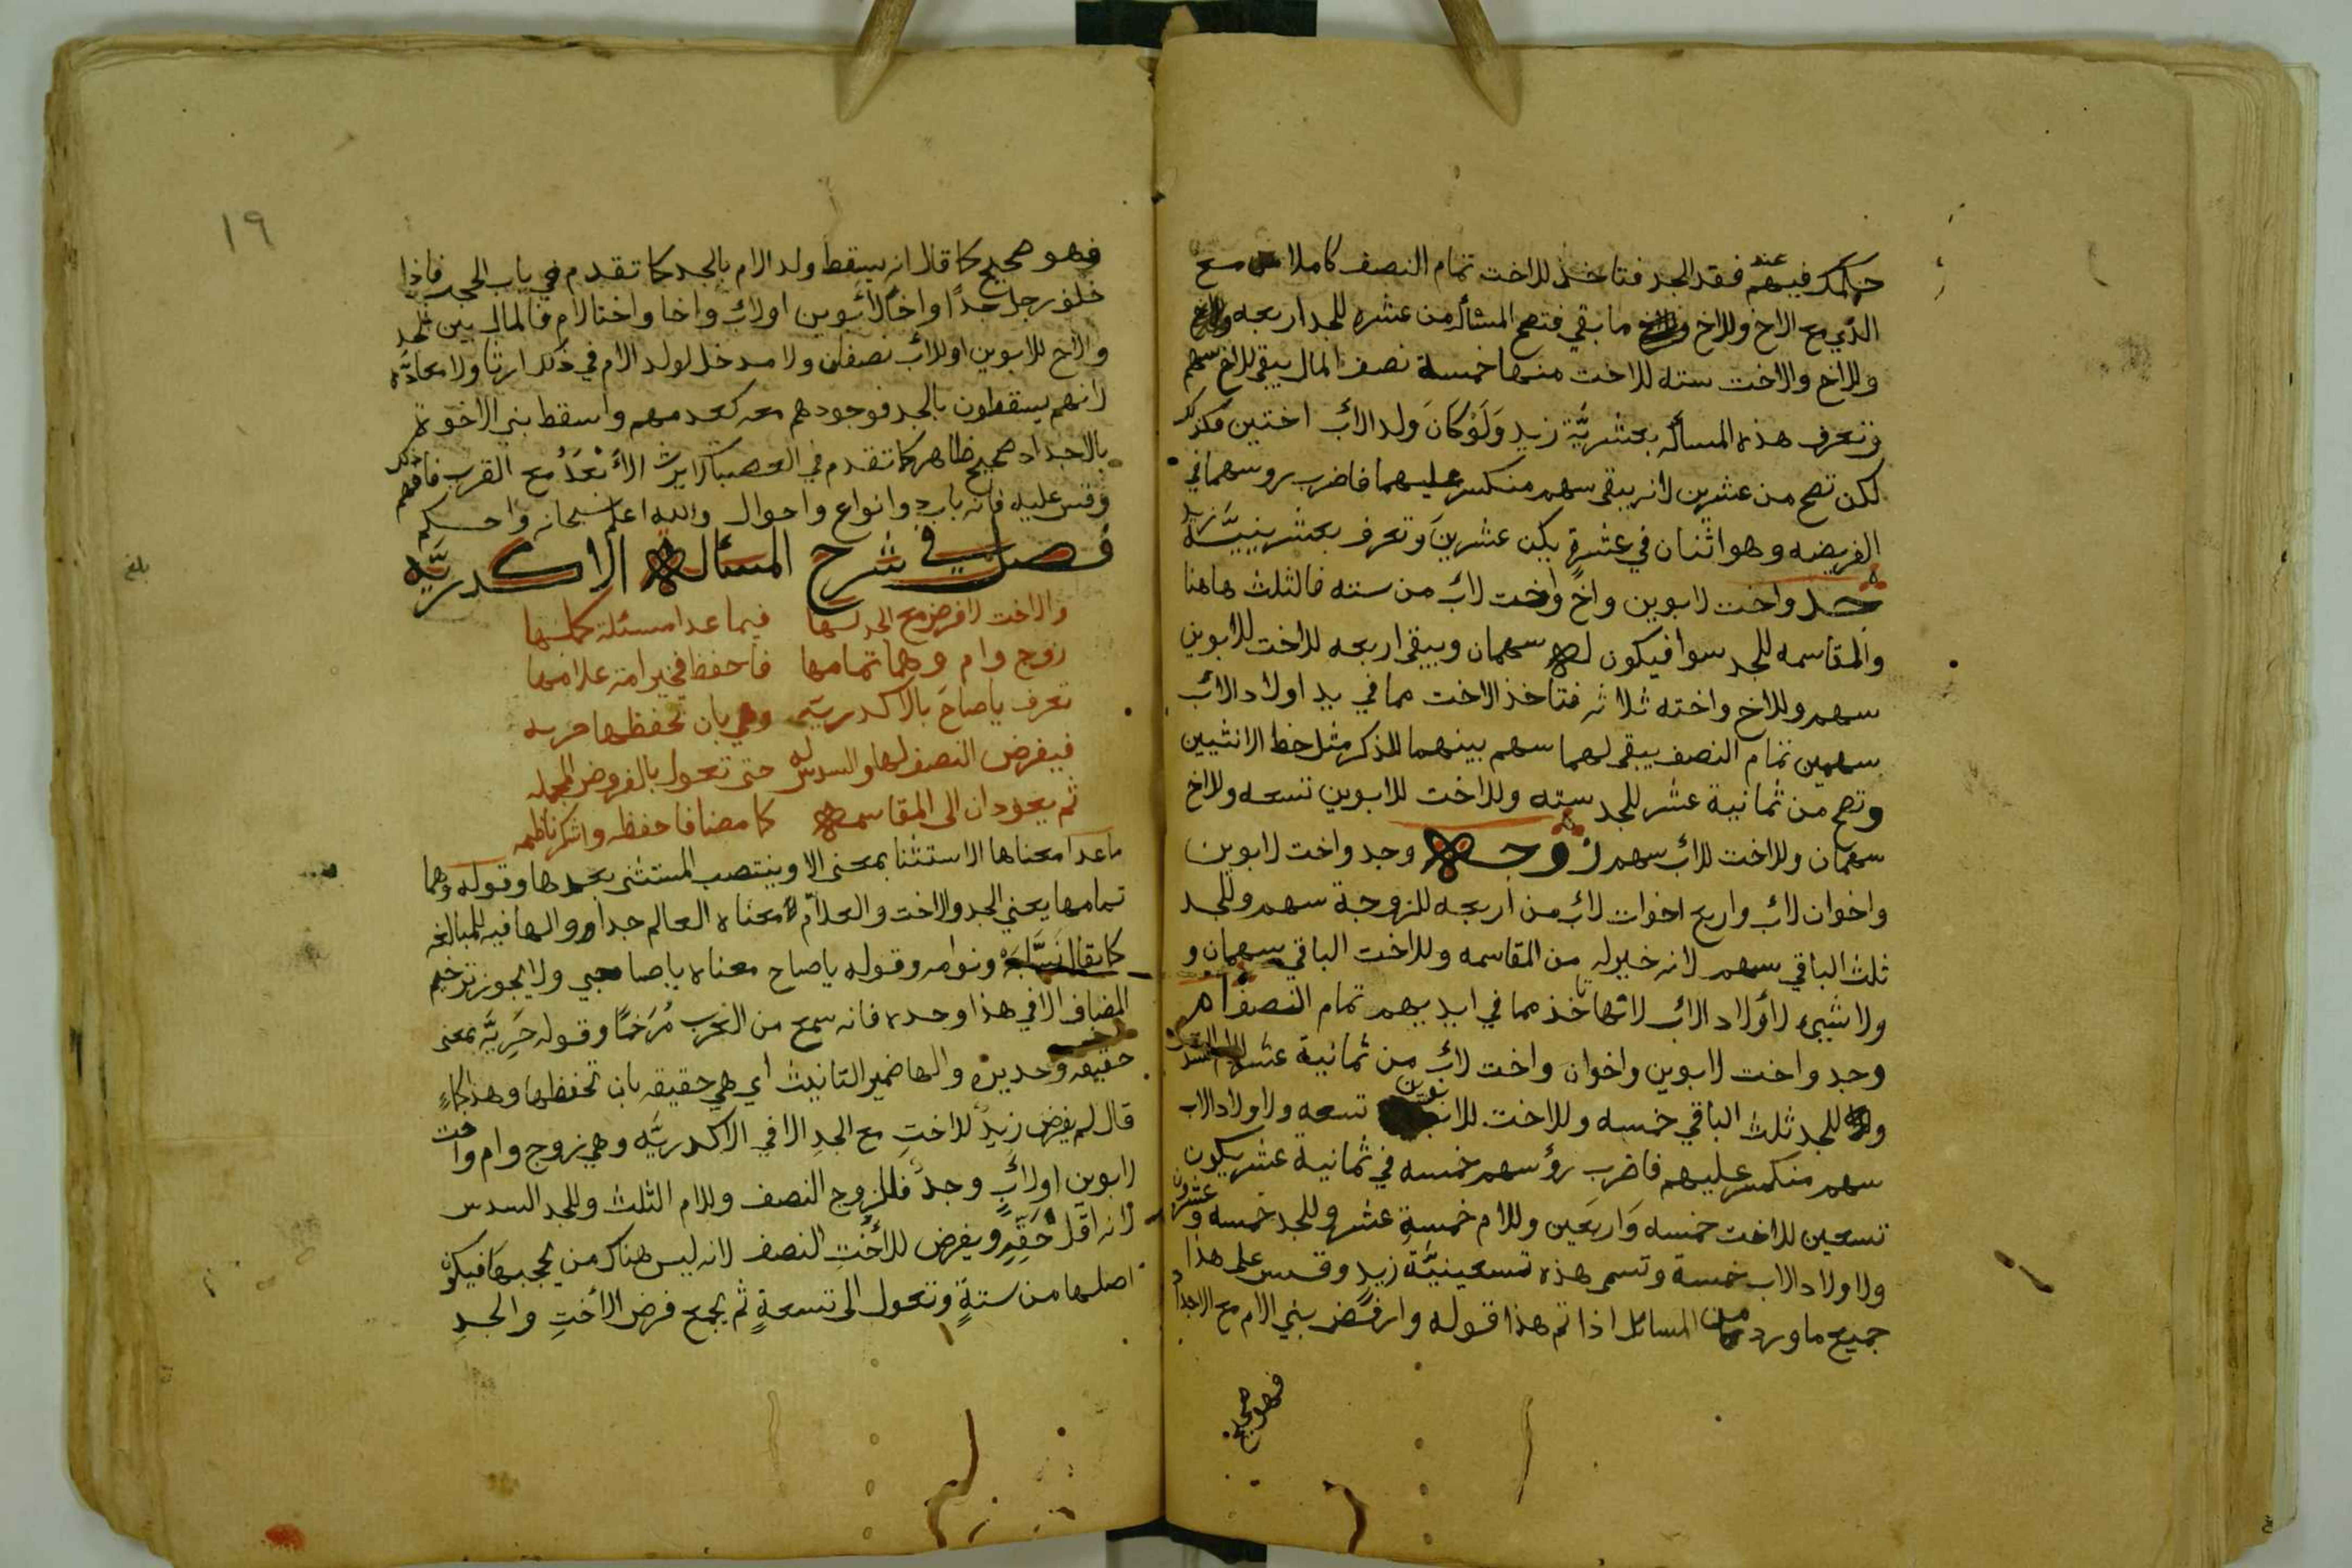 حكمك فيهم عند فقد الجد فتاخذ للاخت تمام النصف كاملا مع
الذي مع الاخ وللاخ ما بقي فتصح المسئلة من عشره للجد اربعه
وللاخ والاخت سته للاخت منها خمسة نصف المال يبقى للاخ سهم
وتعرف هذه المسألة بعشريَّة زيدٍ وَلَوْ كانَ ولد الاب اختين فكذلك
لكن تصح من عشرين لانه يبقى سهم منكسر عليهما فاضرب روسهما في
الفريضه وهو اثنان في عشرةٍ يكن عشرينَ وتعرف بعشرينيَّة زيد
جد واخت لابوين واخ واخت لاب من سته فالثلث هاهنا
والمقاسمه للجد سوا فيكون له سهمان ويبقى اربعه للاخت للابوين
سهم وللاخ واخته ثلاثه فتاخذ الاخت مما في يد اولاد الاب
سهمين تمام النصف يبقى لهما سهم بينهما للذكر مثل حظ الانثيين
وتصح من ثمانية عشر للجد سته وللاخت للابوين تسعه وللاخ
سهمان وللاخت للاب سهم زوجه وجد واخت لابوين
واخوان لاب واربع اخوات لاب من اربعه للزوجة سهم وللجد
ثلث الباقي سهم لانه خير له من المقاسمه وللاخت الباقي سهمان و
ولا شيئ لأولاد الاب لانها تاخذ مما في ايديهم تمام النصف ام
وجد واخت لابوين واخوان واخت لاب من ثمانية عشر للام السدس
وللجد ثلث الباقي خمسه وللاخت للابوين تسعه ولاولاد الاب
سهم منكسر عليهم فاضرب رؤسهم خمسه في ثمانية عشر يكون
تسعين للاخت خمسه وَاربَعين وللام خمسةِ عشر وللجد خمسه وعشرون
ولاولاد الاب خمسة وتسمى هذه تسعينيَّة زيدٍ وقس على هذا
جميع ما ورد من المسائل اذا تم هذا قوله وارفض بني الام مع الاجداد
فهو صحيح
١٩
فهو صحيح كما قال انه يسقط ولد الام بالجد كما تقدم في باب الحجب فاذا
خلف رجل جدًا واخًا لابوين او لاب واخا واختا لام فالمال بين الجد
والاخ للابوين او للاب نصفان ولا مدخل لولد الام في ذلك ارثا ولا معادّه
لانهم يسقطون بالجد فوجودهم معه كعدمهم واسقط بني الاخوة
بالاجداد صحيح ظاهر كما تقدم في العصبات لا يرث الأَبْعَدُ مع القرب فافهم ذلك
وقس عليه فانه باب ذو انواع واحوال والله اعلم سبحانه واحكم
فصل في شرح المسألة الاكدريَّه
والاخت لا فرض مع الجد لها فيما عدا مسئلة كملها
زوج وام وهما تمامها فاحفظ فخير امة علامها
تعرف يا صاحَ بالاكدريَّه وهي بان تحفظها حريه
فيفرض النصف لها والسدس له حتى تعول بالفروض المجمله
ثم يعودان الى المقاسمه كما مضا فاحفظه واشكر ناظمه
ما عدا معناها الاستثنا بمعنى الا وينتصب المستثنى بعدها وقوله وهما
تمامها يعني الجد والاخت والعلاّم معناه العالم جدا والها فيه للمبالغه
كما يقال نَسَّابَة ونوامه وقوله ياصاح معناه ياصاحبي ولا يجوز ترخيم
المضاف الا في هذا وحده فانه سمع من العَرب مُرَخمًا وقوله حَرِيَّه بمعنى
حقيقه وجديره والها ضمير التانيث اي هي حقيقه بان تحفظها وهذا كما
قال لم يفرض زيدٌ للاختِ مع الجدِ الا في الاكدريَّه وهي زوج وام واخت
لابوين او لابٍ وجدٌ فللزوج النصف وللام الثلث وللجد السدس
لانه اقل حَقِّهِ ويفرض للأُخْتِ النصف لانه ليس هناك من يحجبها فيكون
اصلها من ستةٍ وتعول الى تسعةٍ ثم يجمع فرض الأختِ والجدِ
بلغ